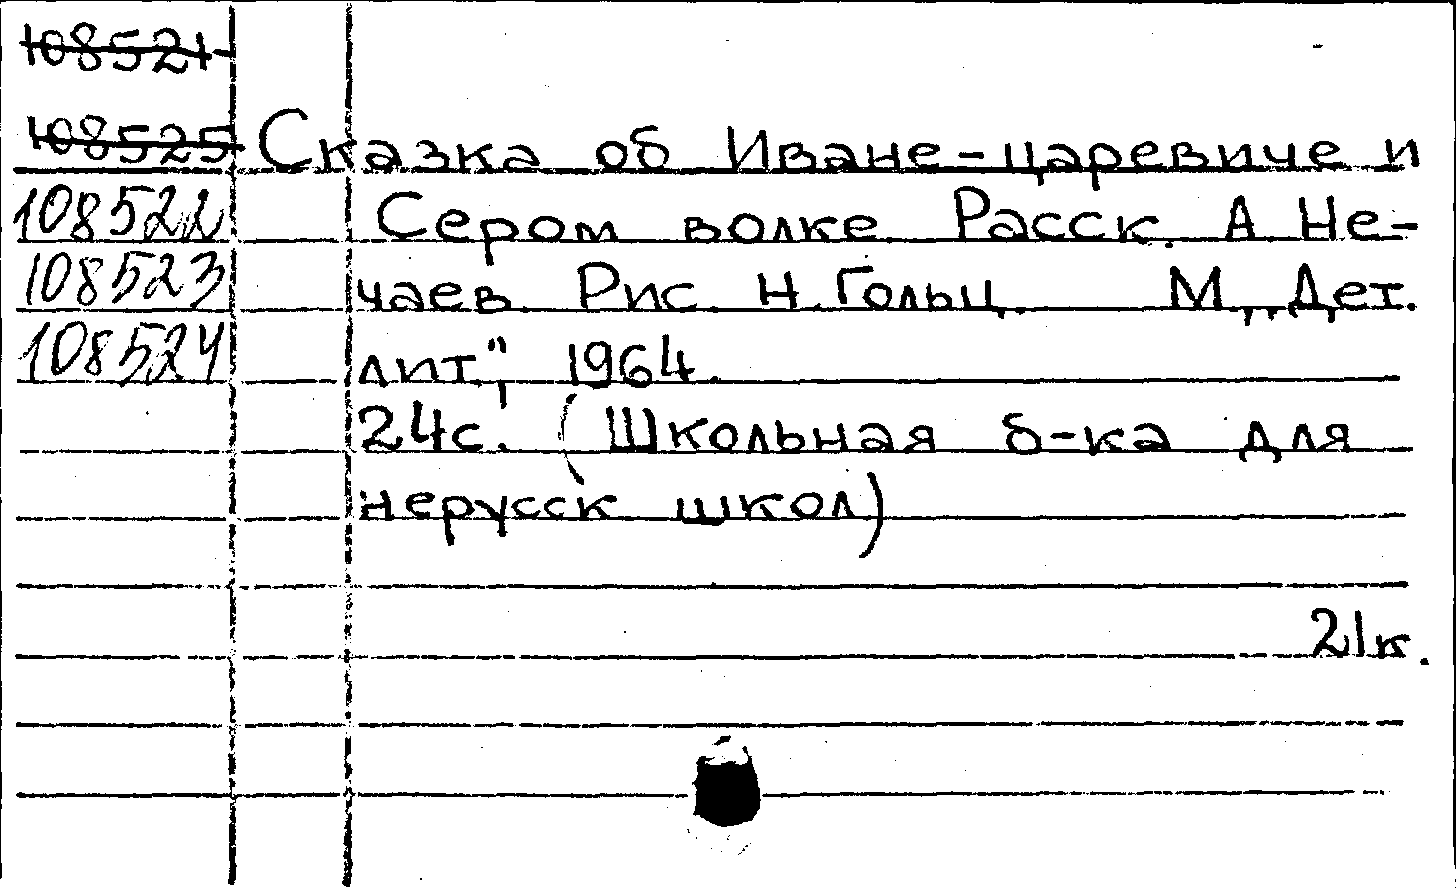 108521
108525 Сказка об Иване-царевиче и
108522 Сером волке. Расск. А Не-
108523 чаев. Рис. Н. Гольц. М., „Дет.
108524 лит.", 1964.
24с. (Школьная б-ка для
нерусск школ)
21к.